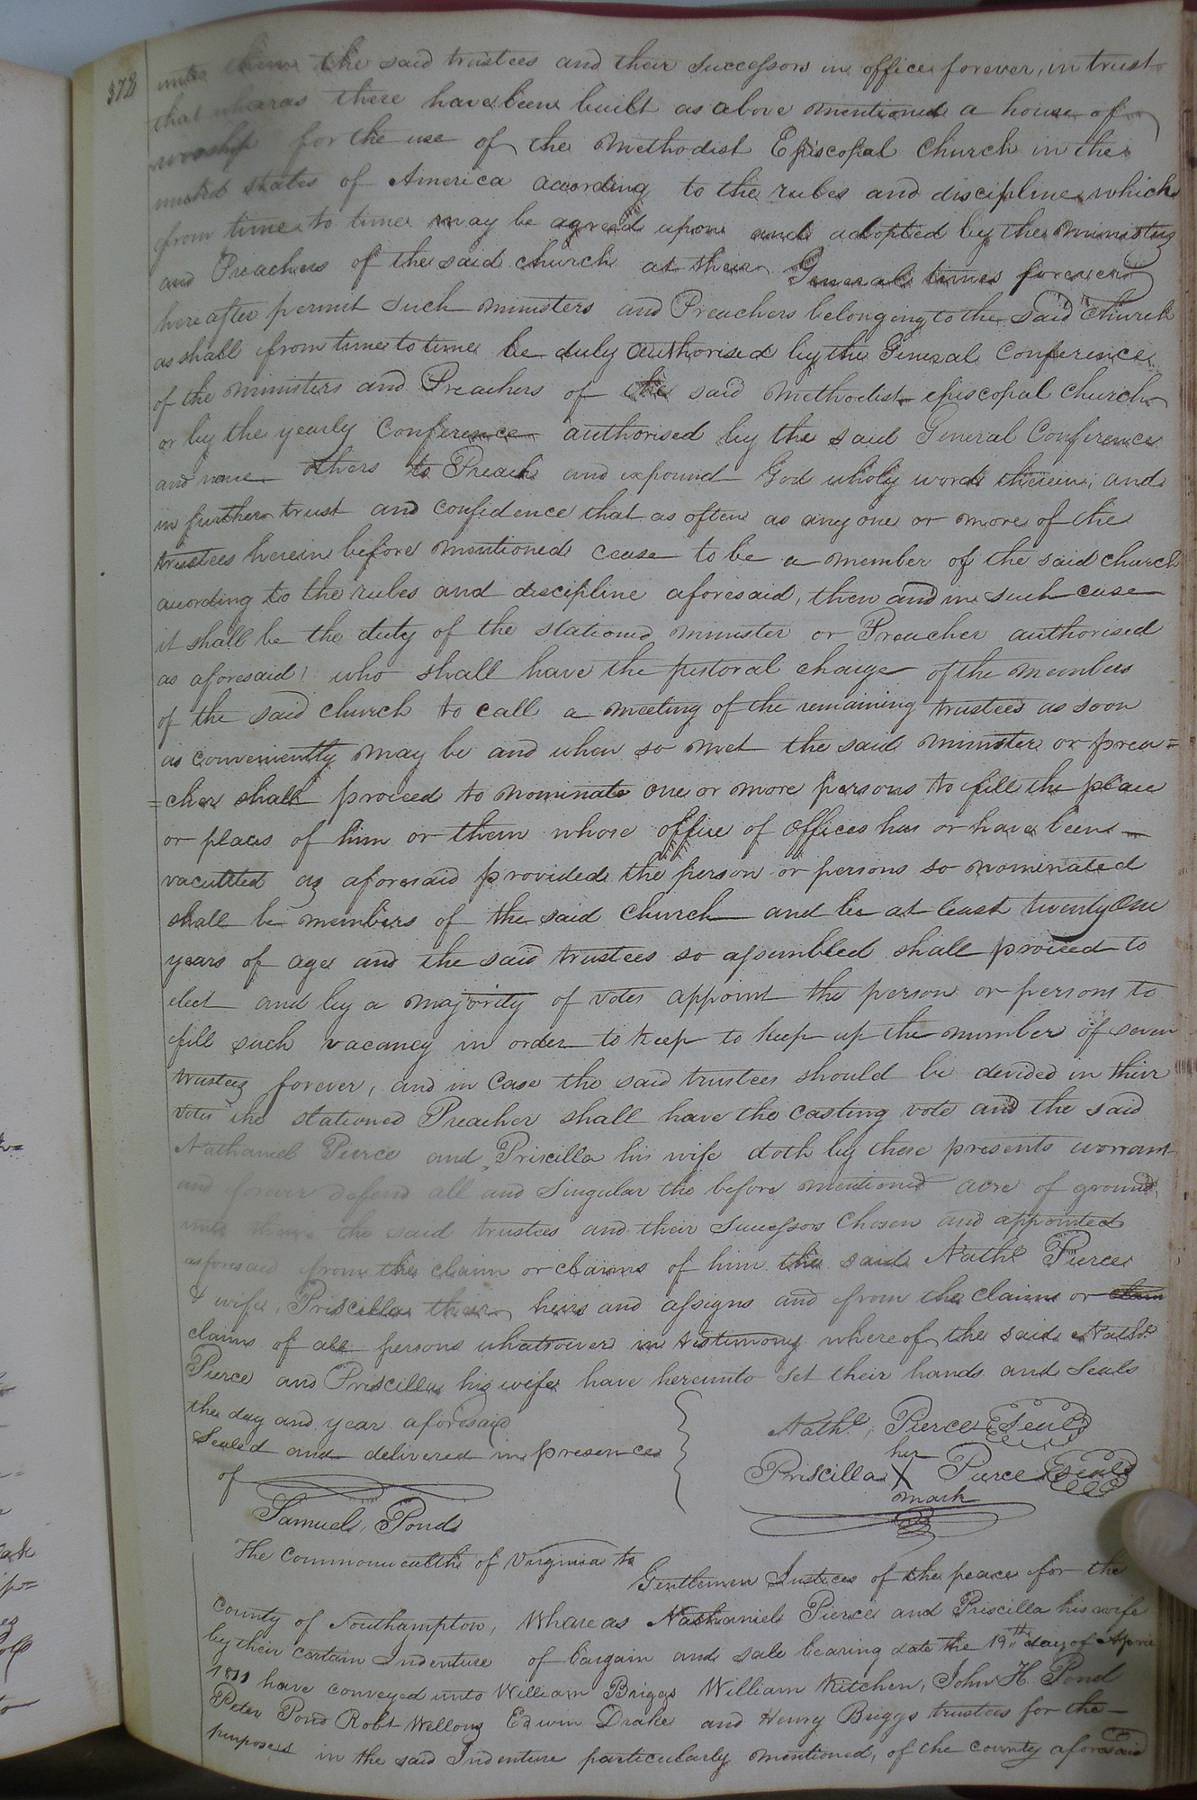 372
unto them the said trustees and their successors in office forever, in trust
that wharas there have been built as above mentioned a house of
worship for the use of the Methodist Episcopal Church in the
united states of America according to the rules and discipline which
from time to time may be agreed upon and adopted by the ministers
and Preachers of the said church at their General times forever
hereafter permit such ministers and Preachers belonging to the said Church
as shall from time to time be duly authorised by the General Conference
of the ministers and Preachers of the said methodist episcopal church
or by the yearly Conference authorised by the said General Conference
and none others to Preach and expound God wholy word therein; and
in further trust and confidence that as often as any one or more of the
trustees herein before mentioned cease to be a member of the said church
acording to the rules and discipline aforesaid, then and in such case
it shall be the duty of the stationed minister or Preacher authorised
as aforesaid, who shall have the pistoral charge of the members
of the said church to call a meeting of the remaining trustees as soon
as conveniently may be and when so met the said minister or prea=
=cher shall proceed to nominate one or more persons to fill the place
or places of him or them whose office of offices has or have been
vacutted as aforesaid provided the person or persons so nominated
shall be members of the said church and be at least twenty one
years of age and the said trustees so assembled shall proceed to
elect and by a majority of votes appoint the person or persons to
fill such vacancy in order to keep to keep up the number of seven
trustees forever, and in case the said trustees should be devided in their
votes the stationed Preacher shall have the casting vote and the said
Nathaniel Peirce and Priscilla his wife doth by these presents worrant
and forever defend all and Singular the before mentioned acre of ground
unto them the said trustees and their Successors Chosen and appointed
aforesaid from the claim or claims of him the said Nathl Pierce
& wife, Priscilla their heirs and assigns and from the claims or claim
claims of all persons whatsoever in testimony whereof the said Nathl
Pierce and Priscilla his wife have hereunto set their hands and Seals
the day and year aforesaid
Sealed and delivered in presence
of
Nathl. Pierce Seal
her
Priscilla X Pierce Seal
mark
Samuel Pond
The Commonwealth of Virginia to
Gentlemen Justices of the peace for the
County of Southampton, Whareas Nathaniel Pierce and Priscilla his wife
by their certain Indenture of bargain and sale bearing date the 19th day of April
1811 have conveyed unto William Briggs William Kitchen, John H. Pond
Peter Pond Robt Wellons Edwin Drake and Henry Briggs trustees for the
purposes in the said Indenture particularly mentioned, of the county aforesaid